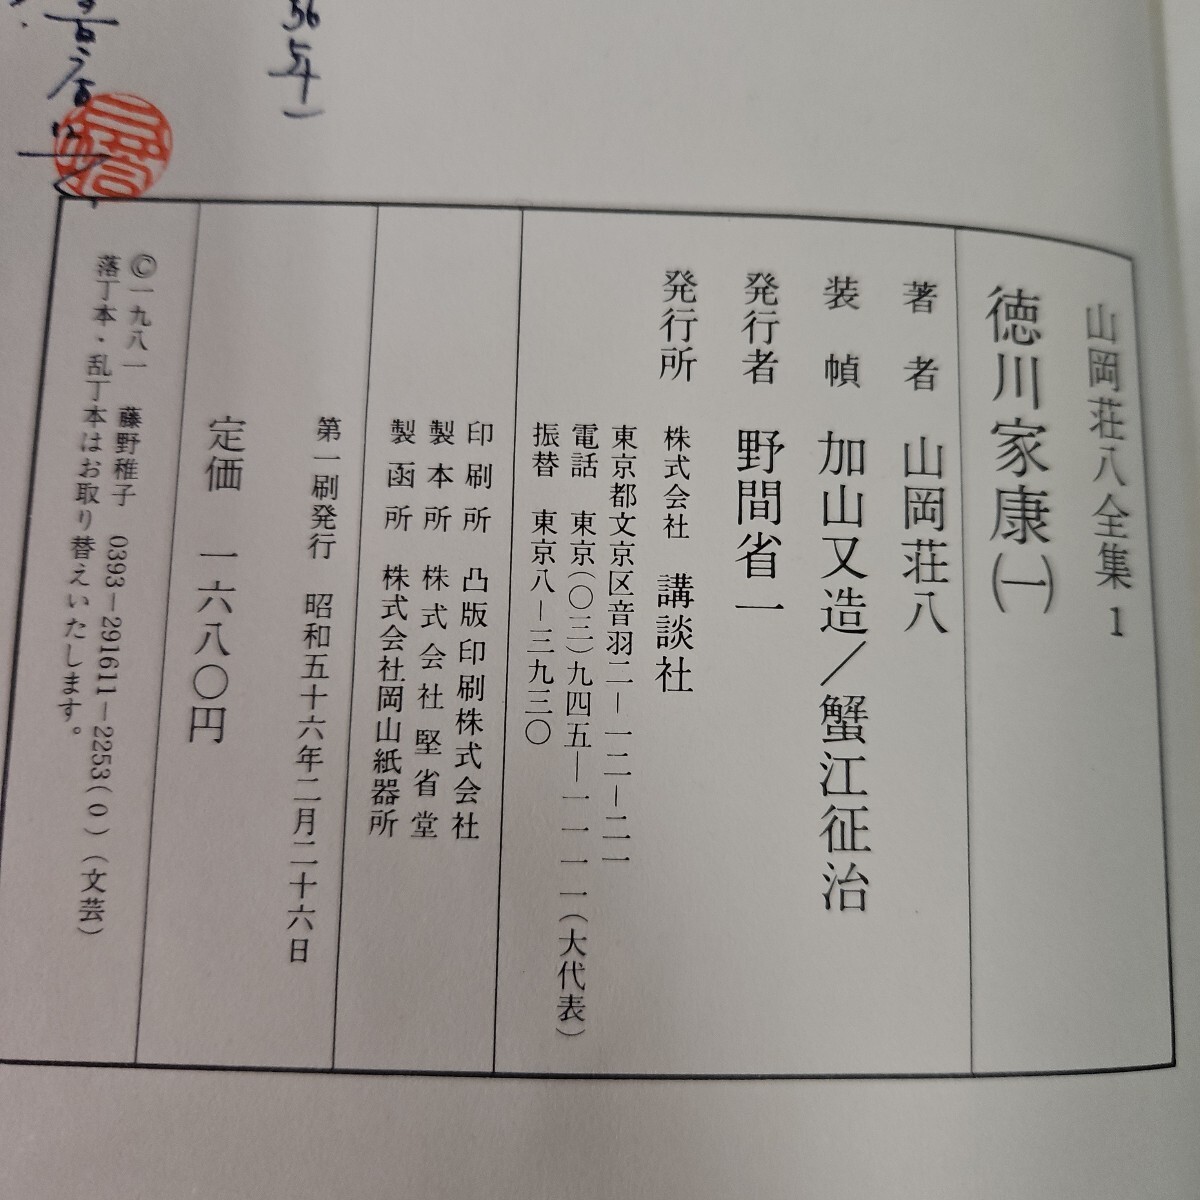 山岡荘八全集 1
徳川家康(一)
著者 山岡荘八
装幀 加山又造/蟹江征治
発行者 野間省一
発行所 株式会社 講談社
東京都文京区音羽二—一二—二一
電話 東京(〇三)九四五—一一一一(大代表)
振替 東京八—三九三〇
印刷所 凸版印刷株式会社
製本所 株式会社堅省堂
製函所 株式会社岡山紙器所
第一刷発行 昭和五十六年二月二十六日
定価 一六八〇円
©一九八一 藤野稚子 0393—291611—2253(0)(文芸)
落丁本・乱丁本はお取り替えいたします。
56年)